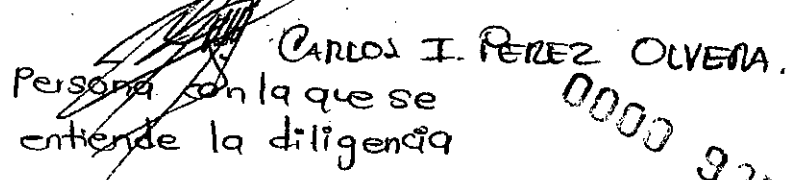 CARLOS I. PEREZ OLVERA.
Persona con la que se
entiende la diligencia
0000